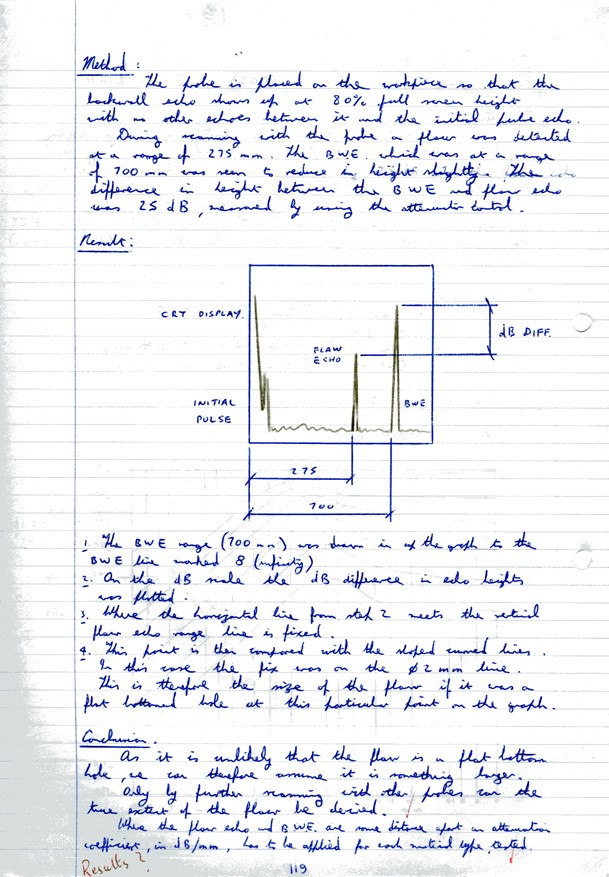 Method :
The probe is placed on the workpiece so that the
backwall echo shows up at 80% full screen height
with no other echoes between it and the initial pulse echo.
During scanning with the probe a flaw was detected
at a range of 275 mm. The BWE, which was at a range
of 700 mm was seen to reduce in height slightly. The
difference in height between the BWE and flaw echo
was 25 dB, measured by using the attenuator control.
Result :
CRT DISPLAY.
FLAW
ECHO
dB DIFF.
INITIAL
PULSE
BWE
275
700
1. The BWE range (700 mm) was drawn in up the graph to the
BWE line marked 8 (infinity)
2. On the dB scale the dB difference in echo heights
was plotted.
3. Where the horizontal line from step 2 meets the vertical
flaw echo range line is fixed.
4. This point is then compared with the sloped curved lines.
In this case the fix was on the ϕ2 mm line.
This is therefore the size of the flaw if it was a
flat bottomed hole at this particular point on the graph.
Conclusion.
As it is unlikely that the flaw is a flat bottom
hole, we can therefore assume it is something larger.
Only by further scanning with other probes can the
true extent of the flaw be derived.
Where the flaw echo and BWE. are some distance apart an attenuation
coefficient, in dB/mm, has to be applied for each material type, tested.
Results ?
119